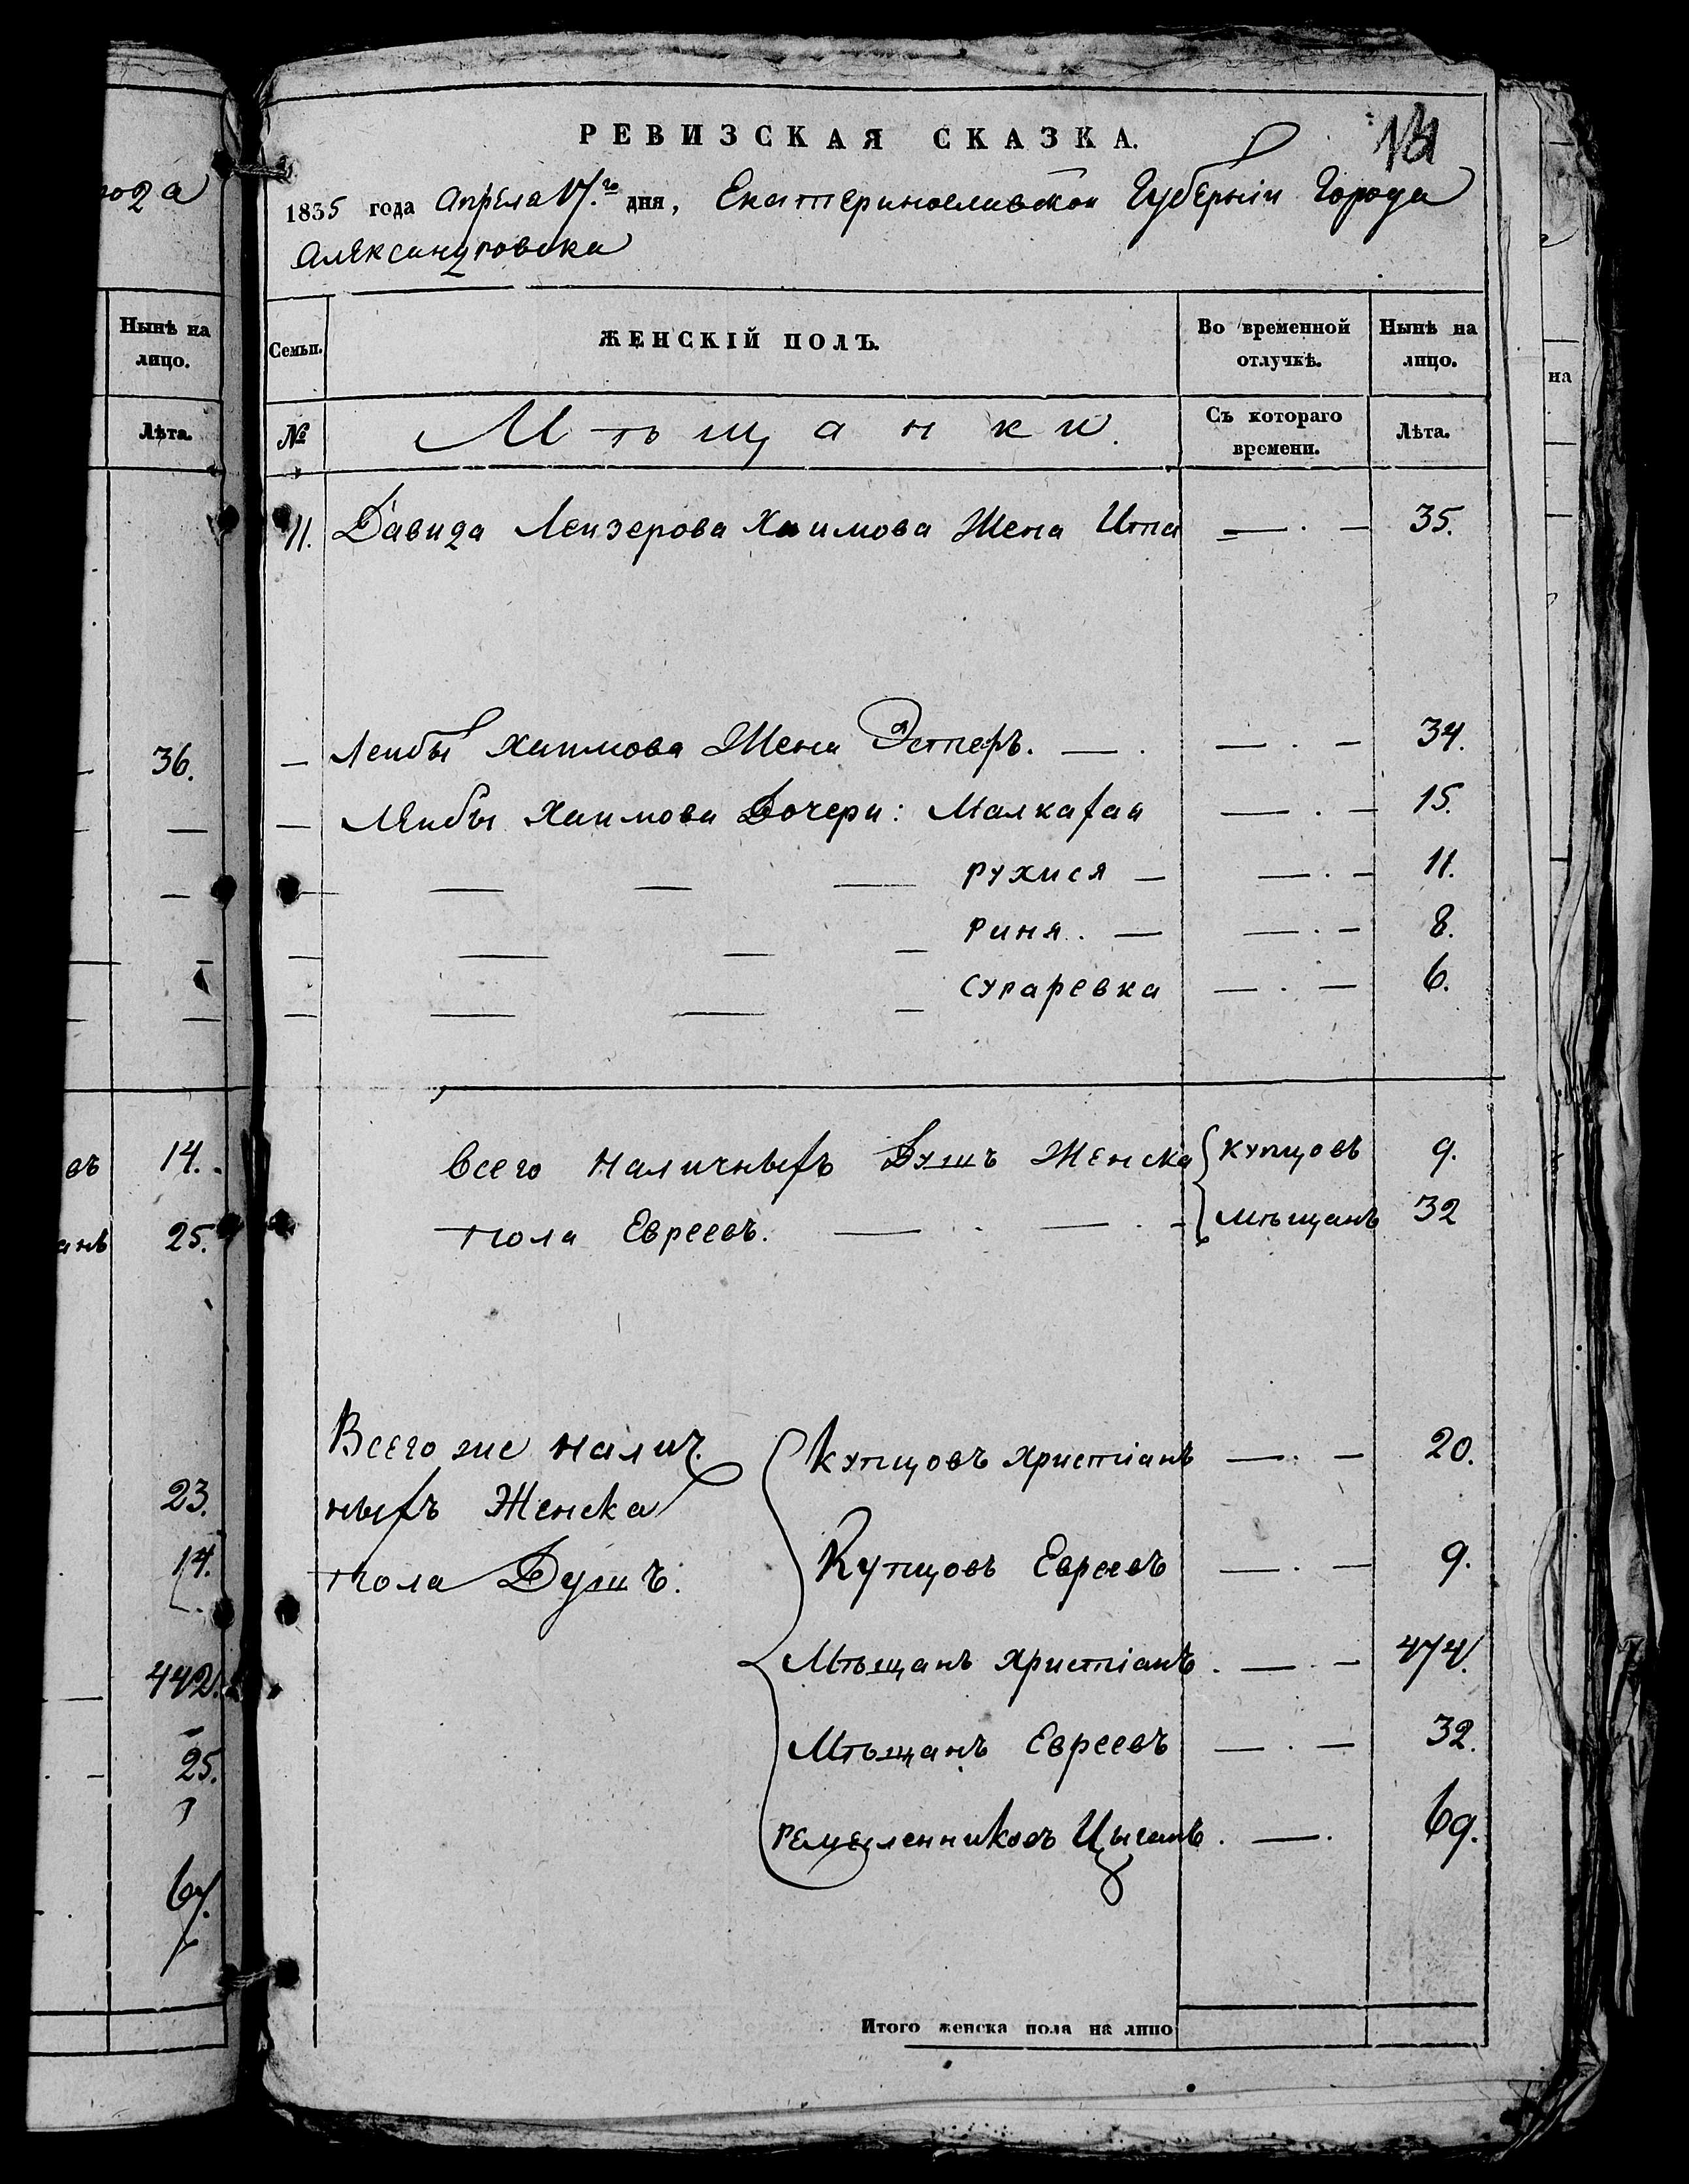 РЕВИЗСКАЯ СКАЗКА.
1835 года Апреля 17.го дня, Екатеринославской Губерніи Города
Александровска
Семьи.
ЖЕНСКІЙ ПОЛЪ.
Во временной
отлучкѣ.
Нынѣ на
лицо.
№
Мѣщанки.
Съ котораго
времени.
Лѣта.
11. Давида Лейзерова Хаимова Жена Ита — . — 35.
— Лейбы Хаимова Жена Эстеръ. — . — . — 34.
— Лейбы Хаимова Дочери: Малкахая — . — 15.
— — — — Рухися — — . — 11.
— — — — Риня. — — . — 8.
— — — — Сураревка — . — 6.
Всего Наличныхъ Душъ Женска { Купцовъ 9.
пола Евреевъ. — . — . — Мѣщанъ 32
Всего же Налич. { Купцовъ Христіанъ — . — 20.
ныхъ Женска
пола Душъ: Купцовъ Евреевъ — . — 9.
Мѣщанъ Христіанъ . — . — 474.
Мѣщанъ Евреевъ — . — 32.
Ремесленниковъ Цыганъ . — . 69.
Итого женска пола на лицо
Нынѣ на
лицо.
Лѣта.
36.
въ 14.
анъ 25.
23.
14.
442.
25.
67.
на